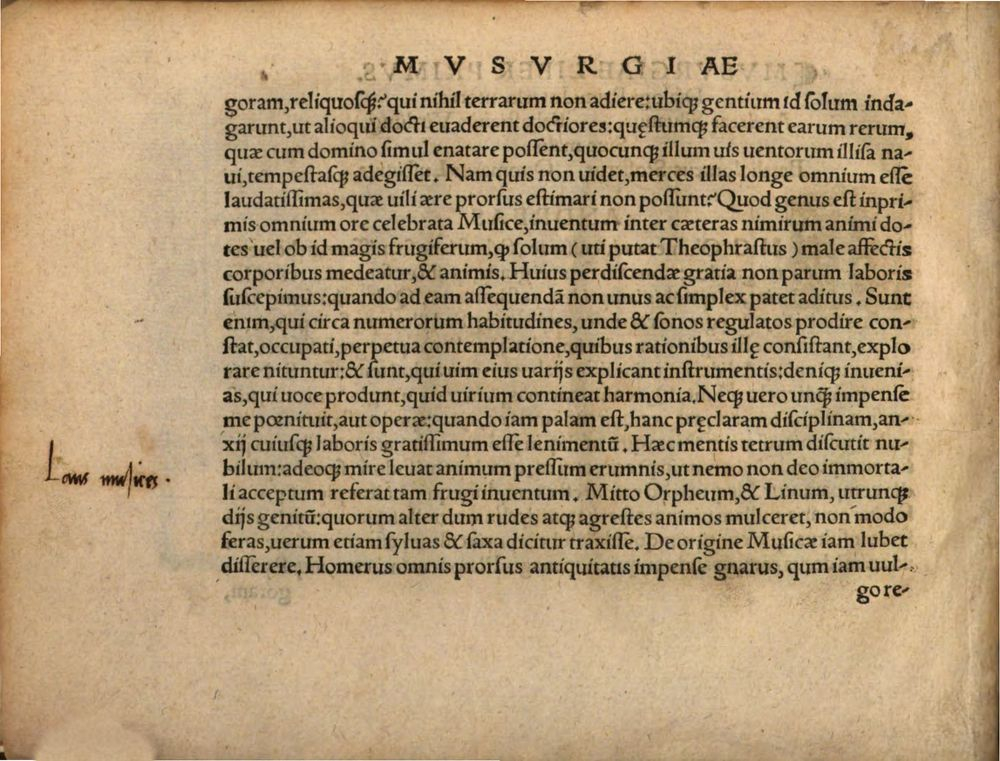 MVSVRGIAE
goram,reliquosq;?qui nihil terrarum non adiere:ubiq; gentium id solum inda-
garunt,ut alioqui docti euaderent doctiores:quęstumq; facerent earum rerum,
quæ cum domino simul enatare possent,quocunq; illum uis uentorum illisa na-
ui,tempestasq; adegisset. Nam quis non uidet,merces illas longe omnium esse
laudatissimas,quæ uili ære prorsus estimari non possunt? Quod genus est inpri-
mis omnium ore celebrata Musice,inuentum inter cæteras nimirum animi do-
tes uel ob id magis frugiferum,ꝙ solum (uti putat Theophrastus) male affectis
corporibus medeatur,& animis. Huius perdiscendæ gratia non parum laboris
suscepimus:quando ad eam assequendā non unus ac simplex patet aditus. Sunt
enim,qui circa numerorum habitudines, unde & sonos regulatos prodire con-
stat,occupati,perpetua contemplatione,quibus rationibus illę consistant,explo
rare nituntur:& sunt,qui uim eius uarijs explicant instrumentis:deniq; inueni-
as,qui uoce produnt,quid uirium contineat harmonia.Neq; uero unq̃ impense
me pœnituit,aut operæ:quando iam palam est, hanc pręclaram disciplinam,an-
xij cuiusq; laboris gratissimum esse lenimentũ. Hæc mentis tetrum discutit nu-
bilum:adeoq; mire leuat animum pressum erumnis,ut nemo non deo immorta-
li acceptum referat tam frugi inuentum. Mitto Orpheum,& Linum, utrunq;
dijs genitũ:quorum alter dum rudes atq; agrestes animos mulceret, non modo
feras,uerum etiam syluas & saxa dicitur traxisse. De origine Musicæ iam lubet
disserere. Homerus omnis prorsus antiquitatis impense gnarus, qum iam uul-
go re-
Laus musices.